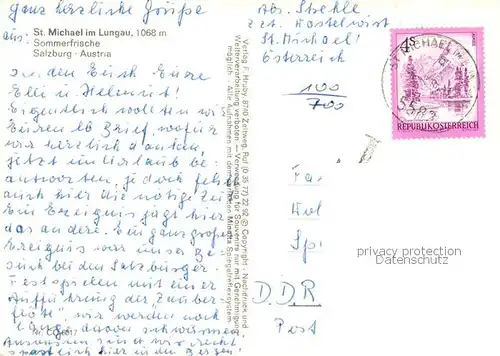 ganz herzliche Grüße
aus: St. Michael im Lungau, 1068 m
Sommerfrische
Salzburg - Austria
senden Euch Eure
Elli u. Helmut!
Eigentlich wollten wir
Euren lb Brief, wofür
wir herzlich danken,
jetzt im Urlaub be-
antworten, jedoch fehlt
auch hier die nötige Zeit.
Ein Ereignis jagt hier
das andere. Ein ganz großes
Ereignis war unser Be-
such bei den Salzburger
Festspielen mit einer
Aufführung der "Zauber-
flöte", wir werden noch
lange davon schwärmen.
Ansonsten sind wir
hier in den Bergen!
Nr. CO
Verlag F. Huby, 8740 Zeltweg, Ruf (0 35 77) 22 52 © Copyright - Nachdruck und
Weiterverarbeitung verboten - Verwendung für Souvenirs nur mit Genehmigung
möglich - Alle Aufnahmen mit dem Minolta Spiegelreflexsystem
Abs. Stehle
zzt. Kastelwirt
St. Michael!
Österreich
100
700
4S
REPUBLIK ÖSTERREICH
ST. MICHAEL IM
5582
Fa
Wol
Sp
D.D.R
Post
privacy protection
Datenschutz